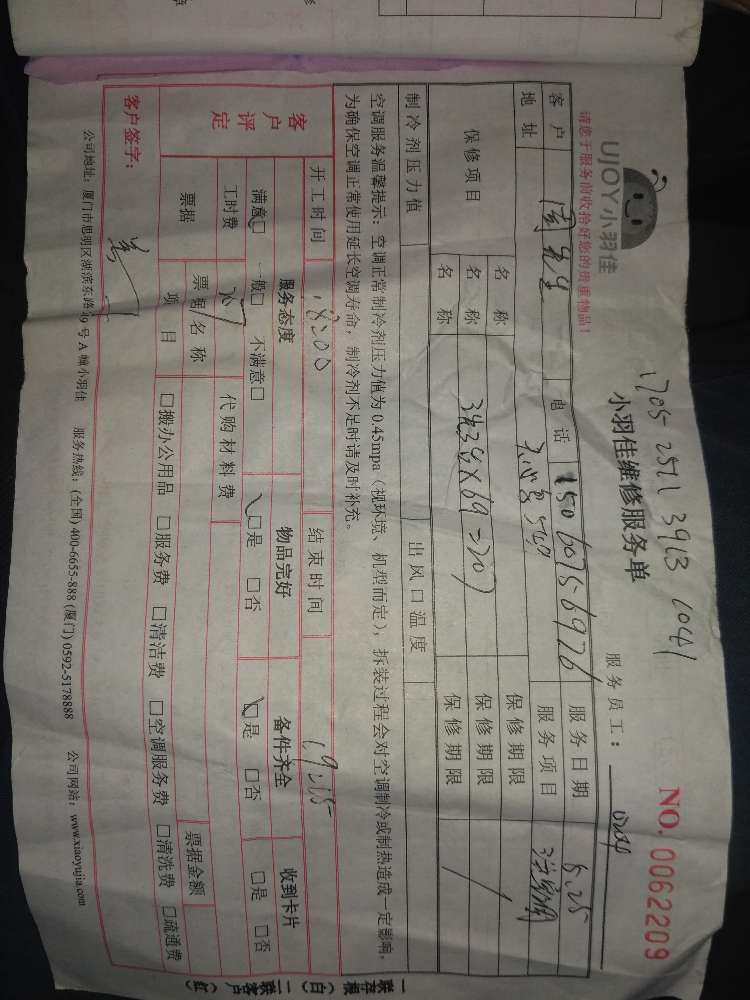 UJOY小羽佳
请您于服务前收拾好您的贵重物品！
1705 2511 3913 1041
小羽佳维修服务单
NO. 0062209
服务员工：
客户 周先生 电话 150 6075-6976 服务日期 5.25
地址 服务项目
保修项目 名称 保修期限
名称 3先34×69=207 保修期限
名称 保修期限
制冷剂压力值 出风口温度
空调服务温馨提示：空调正常制冷剂压力值为0.45mpa（视环境、机型而定），拆装过程会对空调制冷或制热造成一定影响，
为确保空调正常使用延长空调寿命，制冷剂不足时请及时补充。
客户评定
开工时间 18:00 结束时间 19:15
服务态度 物品完好 备件齐全 收到卡片
满意□ 一般□ 不满意□ □是 □否 □是 □否 □是 □否
工时费 代购材料费
票据 票据名称 票据金额
项目 □搬办公用品 □服务费 □清洁费 □空调服务费 □清洗费 □疏通费
客户签字：
公司地址：厦门市思明区湖滨东路49号A幢小羽佳 服务热线：(全国) 400-6655-888 (厦门) 0592-5178888 公司网站：www.xiaoyujia.com
一联存根（白） 二联客户（红）